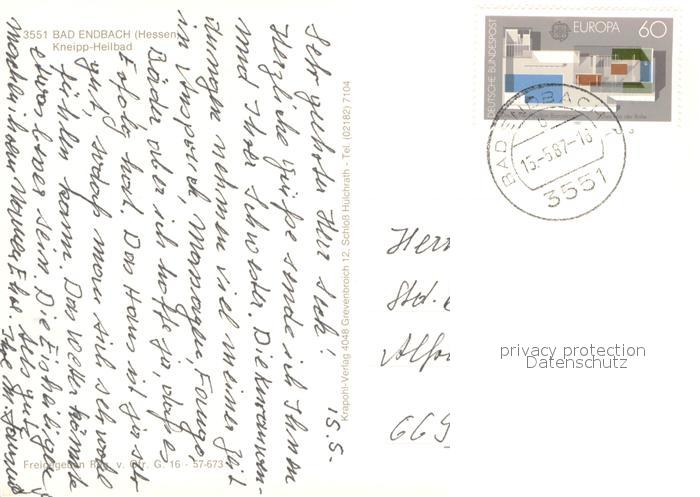 3551 BAD ENDBACH (Hessen)
Kneipp-Heilbad
15.5.
Sehr geehrter Herr
Herzliche Grüße sende ich Ihnen
und Ihrer Schwester. Die Anwen-
dungen nehmen viel meiner Zeit
in Anspruch, Massagen, Fango,
Bäder, aber ich hoffe, daß es
Erfolg hat. Das Haus ist ja sehr
gut, sodaß man sich sehr wohl
fühlen kann. Das Wetter könnte
etwas besser sein. Die Eisheiligen
machen ihrem Namen Ehre. Alles Gute
Ihre
Freigegeben Reg. v. Ofr. G. 16 - 57-673
Krapohl-Verlag 4048 Grevenbroich 12, Schloß Hülchrath - Tel. (02182) 7104
DEUTSCHE BUNDESPOST
EUROPA 60
BAD ENDBACH
15-5.87-18
3551
Herr
Std.
Alfo
669
privacy protection
Datenschutz